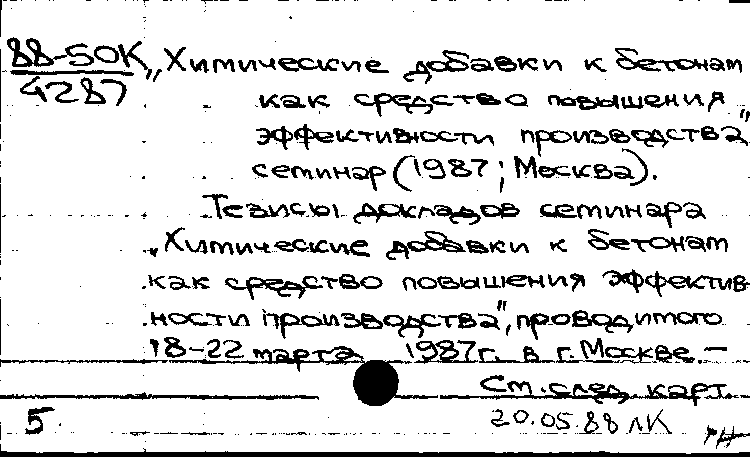 88-50К
4287
„Химические добавки к бетонам
как средство повышения
эффективности производства”
семинар (1987; Москва).
Тезисы докладов семинара
„Химические добавки к бетонам
как средство повышения эффектив-
ности производства”, проводимого
18-22 марта 1987г. в г. Москве.–
См. след. карт.
5
20.05.88 ЛК